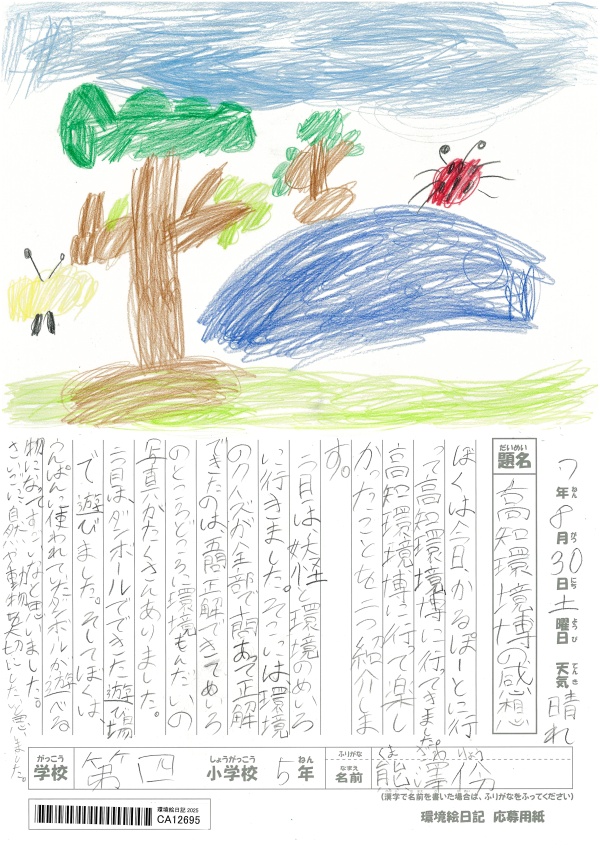 7年8月30日土曜日 天気 晴れ
ねん がつ にち ようび てんき
だいめい
題名
高知環境博の感想
ぼくは今日、かるぽーとに行
って高知環境博に行ってきました。
高知環境博に行って楽し
かったことを二つ紹介しま
す。
今日は妖怪と環境のめいろ
に行きました。そこには環境
のクイズが全部で5問あって正解
できたのは5問正解できてめいろ
のところどころに環境もんだいの
写真がたくさんありました。
今日は、ダンボールでできた遊び場
で遊びました。そしてぼくは、
うんぱんに使われていたダンボールが遊べる
物になってすごいなと思いました。
さいごに自然や動物を大切にしたいと思いました。
がっこう
学校
第四
しょうがっこう
小学校
5
ねん
年
ふりがな
なまえ
名前
(漢字で名前を書いた場合は、ふりがなをふってください)
環境絵日記 2025
CA12695
環境絵日記 応募用紙